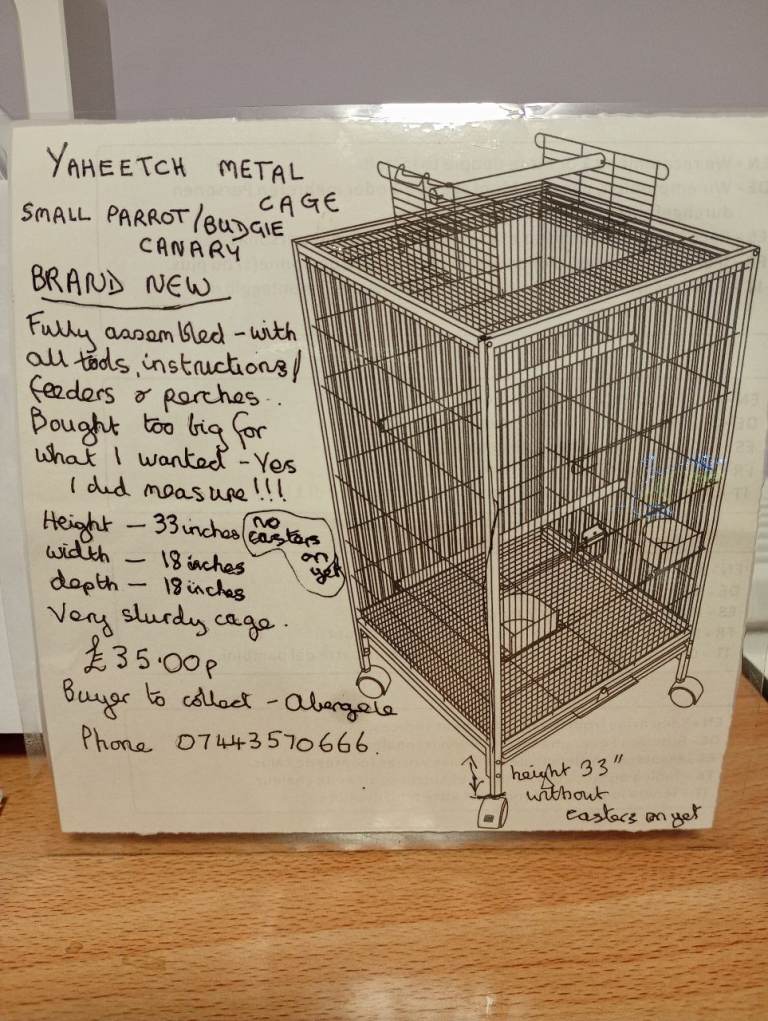 YAHEETCH METAL
CAGE
SMALL PARROT/BUDGIE
CANARY
BRAND NEW
Fully assembled - with
all tools, instructions/
feeders & perches..
Bought too big for
what I wanted - Yes
I did measure!!!
Height - 33 inches
no
casters
on
yet
width - 18 inches
depth - 18 inches
Very sturdy cage.
£35.00p
Buyer to collect - Abergele
Phone 07443570666.
height 33"
without
casters on yet